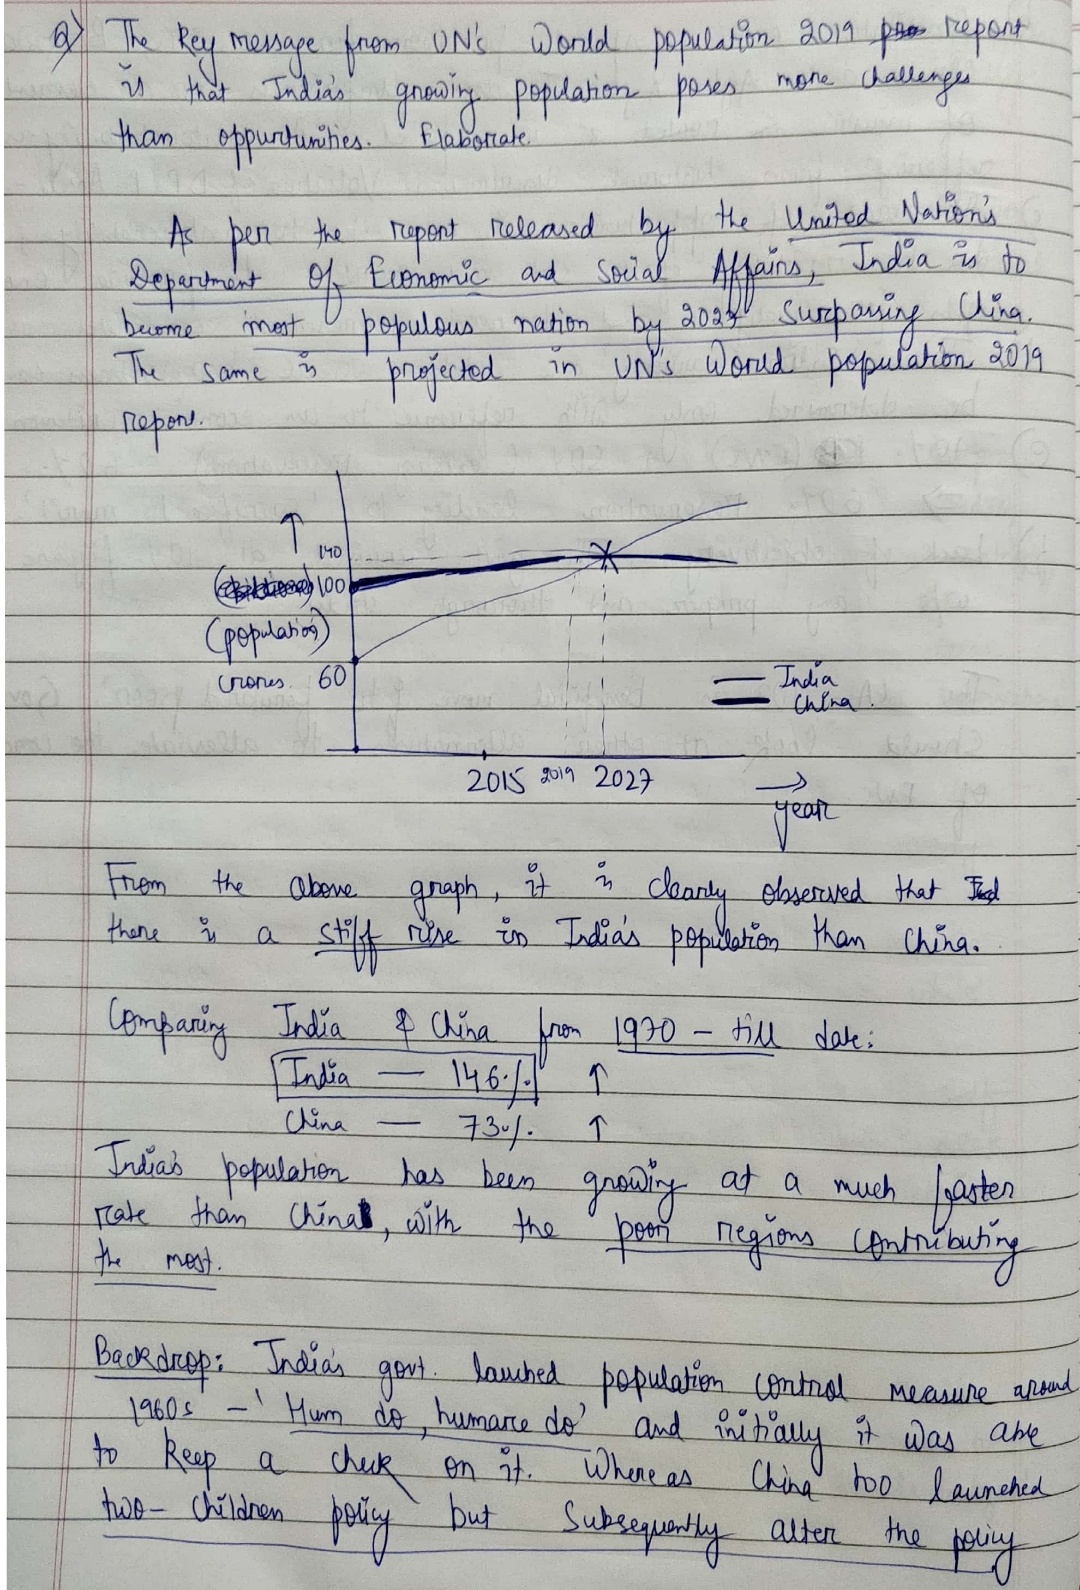 Q) The Key message from UN's World population 2019 report
is that India's growing population poses more challenges
than oppurtunities. Elaborate.
As per the report released by the United Nation's
Department Of Economic and Social Affairs, India is to
become most populous nation by 2027 Surpassing China.
The same is projected in UN's World population 2019
report.
140
100
(population)
crores. 60
India
China.
2015 2019 2027
year
From the above graph, it is clearly observed that
there is a stiff rise in India's population than China.
Comparing India & China from 1970 - till date:
India — 146% ↑
China — 73% ↑
India's population has been growing at a much faster
rate than China, with the poor regions contributing
the most.
Backdrop: India's govt. lauched population control measure around
1960s - 'Hum do, humare do' and initially it was able
to keep a check on it. Where as China too launched
two- children policy but Subsequently alter the policy